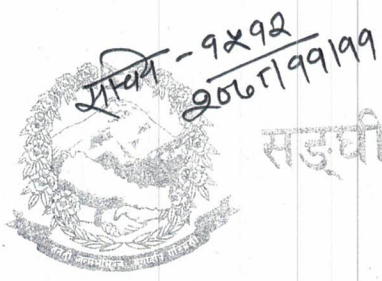 सचिव - १५१२
२०७८।११।११
सङ्घी
जननी जन्मभूमिश्च स्वर्गादपि गरीयसी